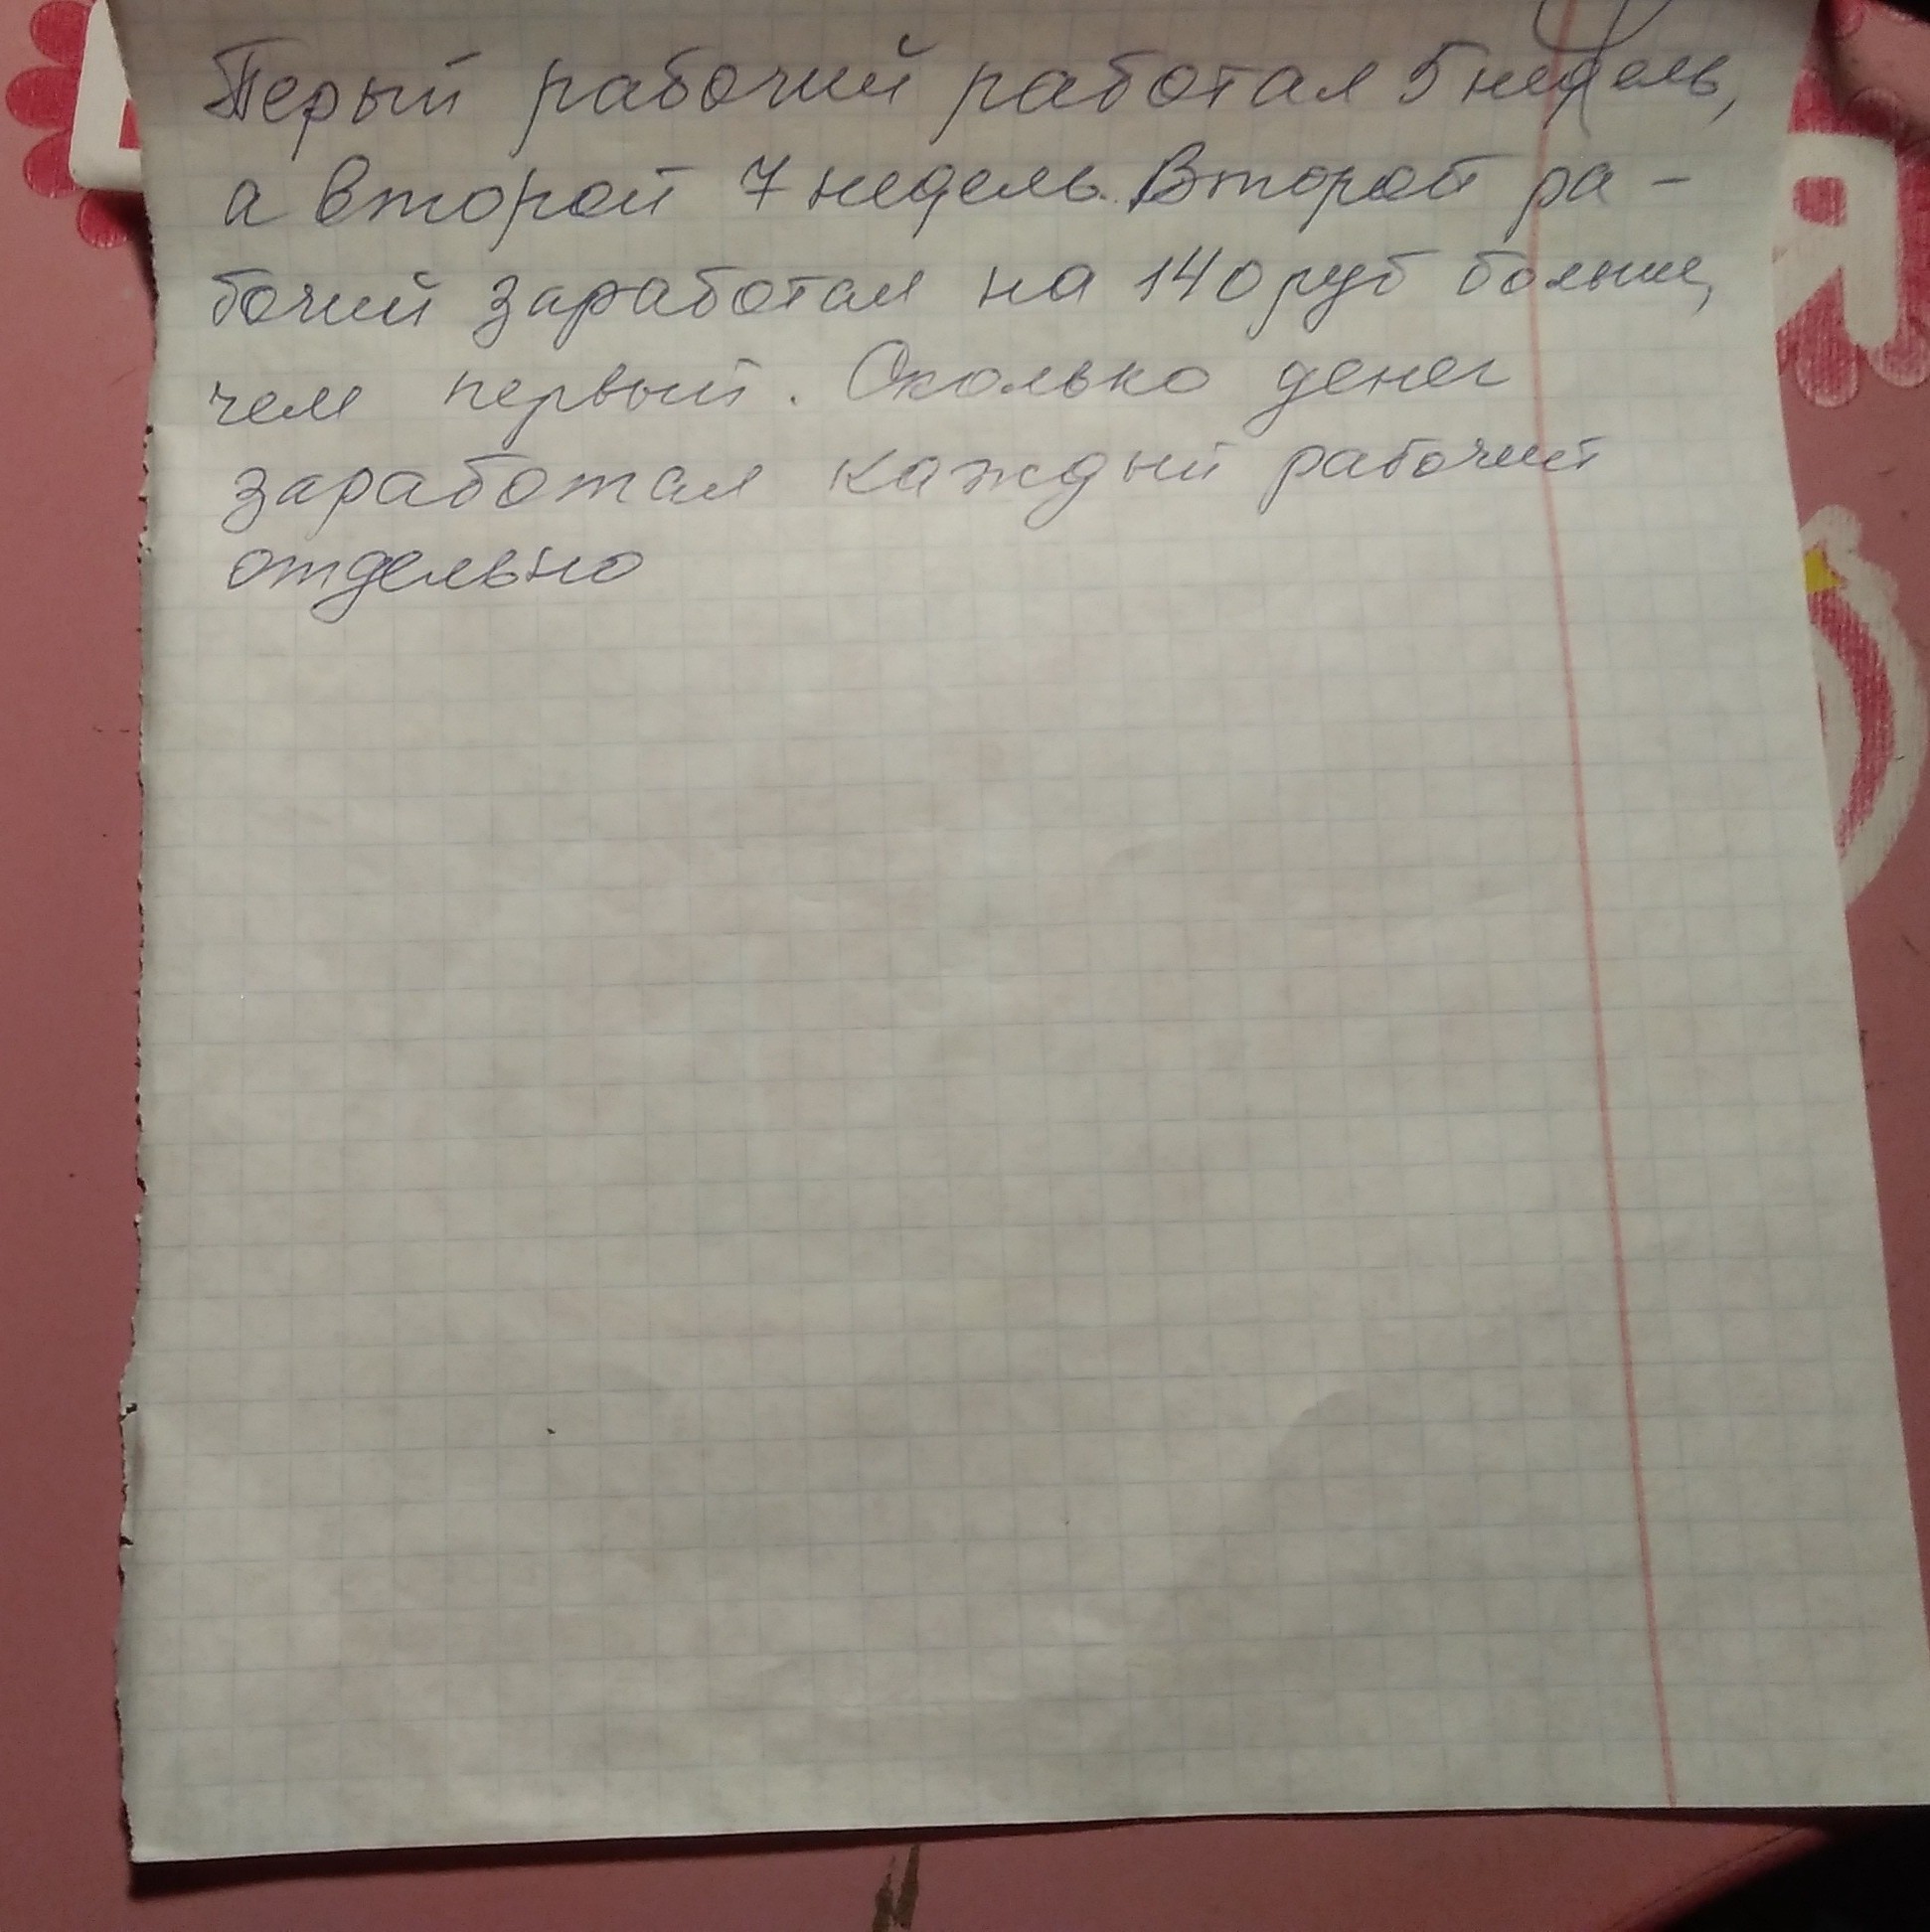 Перый рабочий работал 5 недель,
а второй 7 недель. Второй ра-
бочий заработал на 140 руб больше,
чем первый. Сколько денег
заработал каждый рабочий
отдельно